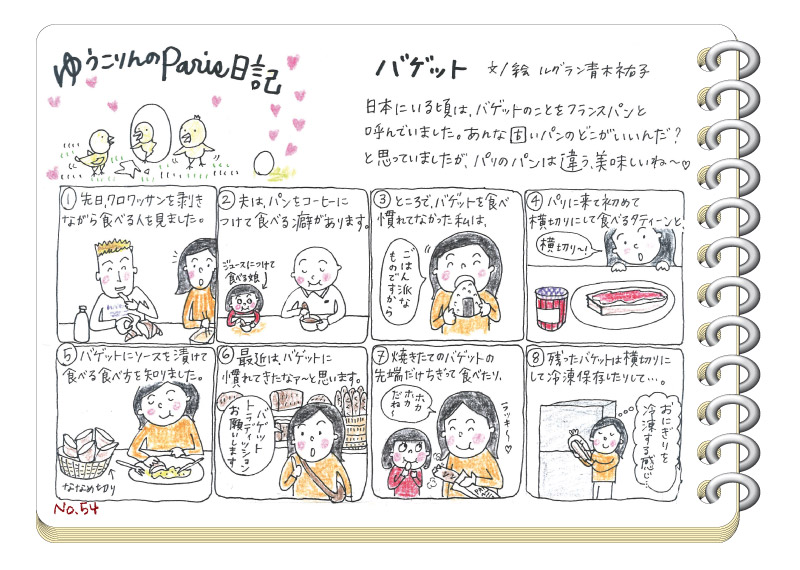 ゆうこりんのParis日記
バゲット 文/絵 ルグラン青木祐子
日本にいる頃は、バゲットのことをフランスパンと
呼んでいました。あんな固いパンのどこがいいんだ?
と思っていましたが、パリのパンは違う、美味しいね〜♡
① 先日、クロワッサンを剥き
ながら食べる人を見ました。
② 夫は、パンをコーヒーに
つけて食べる癖があります。
ジュースにつけて
食べる娘
③ ところで、バゲットを食べ
慣れてなかった私は、
ごはん派な
ものですから
④ パリに来て初めて
横切りにして食べるタティーンと、
横切り〜!
⑤ バゲットにソースを漬けて
食べる食べ方を知りました。
ななめ切り
⑥ 最近は、バゲットに
慣れてきたなァ〜と思います。
バゲット
トラディッション
お願いします
⑦ 焼きたてのバゲットの
先端だけちぎって食べたり、
ホカ
ホカ
だね
ラッキ〜♡
⑧ 残ったバゲットは横切りに
して冷凍保存したりして…。
おにぎりを
冷凍する感じ…
No.54